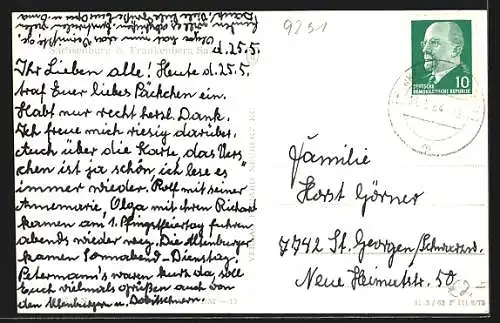 9231
d. 25.5.
Sachsenburg b. Frankenberg Sa.
Ihr Lieben alle! Heute d. 25.5.
traf Euer liebes Päckchen ein.
Habt nur recht herzl. Dank.
Ich freue mich riesig darüber,
Auch über die Karte, das Vers
chen ist ja schön, ich lese es
immer wieder. Rolf mit seiner
Annemarie, Olga mit ihren Richard
kamen am 1. Pfingstfeiertag fuhren
abends wieder weg. Die Altenburger
kamen Sonnabend - Dienstag.
Petermann's waren kurz da, soll
Euch vielmals grüßen auch von
den Altenburger u. Dobitschnern.
DEUTSCHE
DEMOKRATISCHE REPUBLIK
10
Familie
Horst Görner
7742 St. Georgen/Schwarzw.
Neue Heimatstr. 50
€2.-